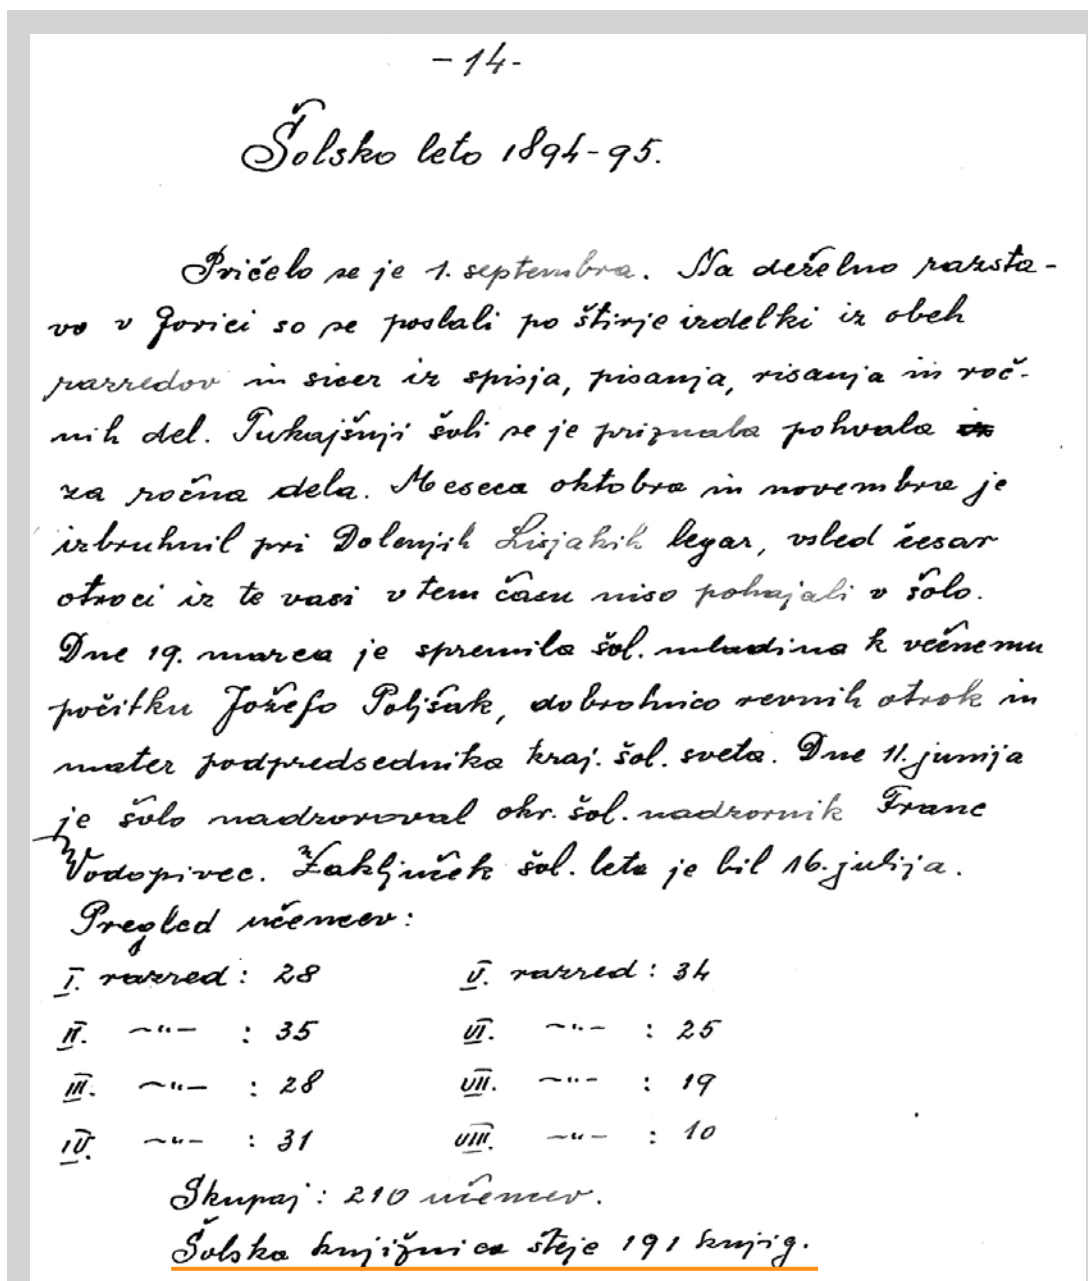 - 14 -
Šolsko leto 1894-95.
Pričelo se je 1. septembra. Na deželno razsta-
vo v Gorici so se poslali po štirje izdelki iz obeh
razredov in sicer iz spisja, pisanja, risanja in roč-
nih del. Tukajšnji šoli se je priznala pohvala
za ročna dela. Meseca oktobra in novembra je
izbruhnil pri Dolenjih Lisjakih legar, vsled česar
otroci iz te vasi v tem času niso pohajali v šolo.
Dne 19. marca je spremila šol. mladina k večnemu
počitku Jožefo Poljšak, dobrotnico revnih otrok in
mater podpredsednika kraj. šol. sveta. Dne 11. junija
je šolo nadzoroval okr. šol. nadzornik Franc
Vodopivec. Zaključek šol. leta je bil 16. julija.
Pregled učencev:
I. razred : 28 V. razred : 34
II. -"- : 35 VI. -"- : 25
III. -"- : 28 VII. -"- : 19
IV. -"- : 31 VIII. -"- : 10
Skupaj : 210 učencev.
Šolska knjižnica šteje 191 knjig.